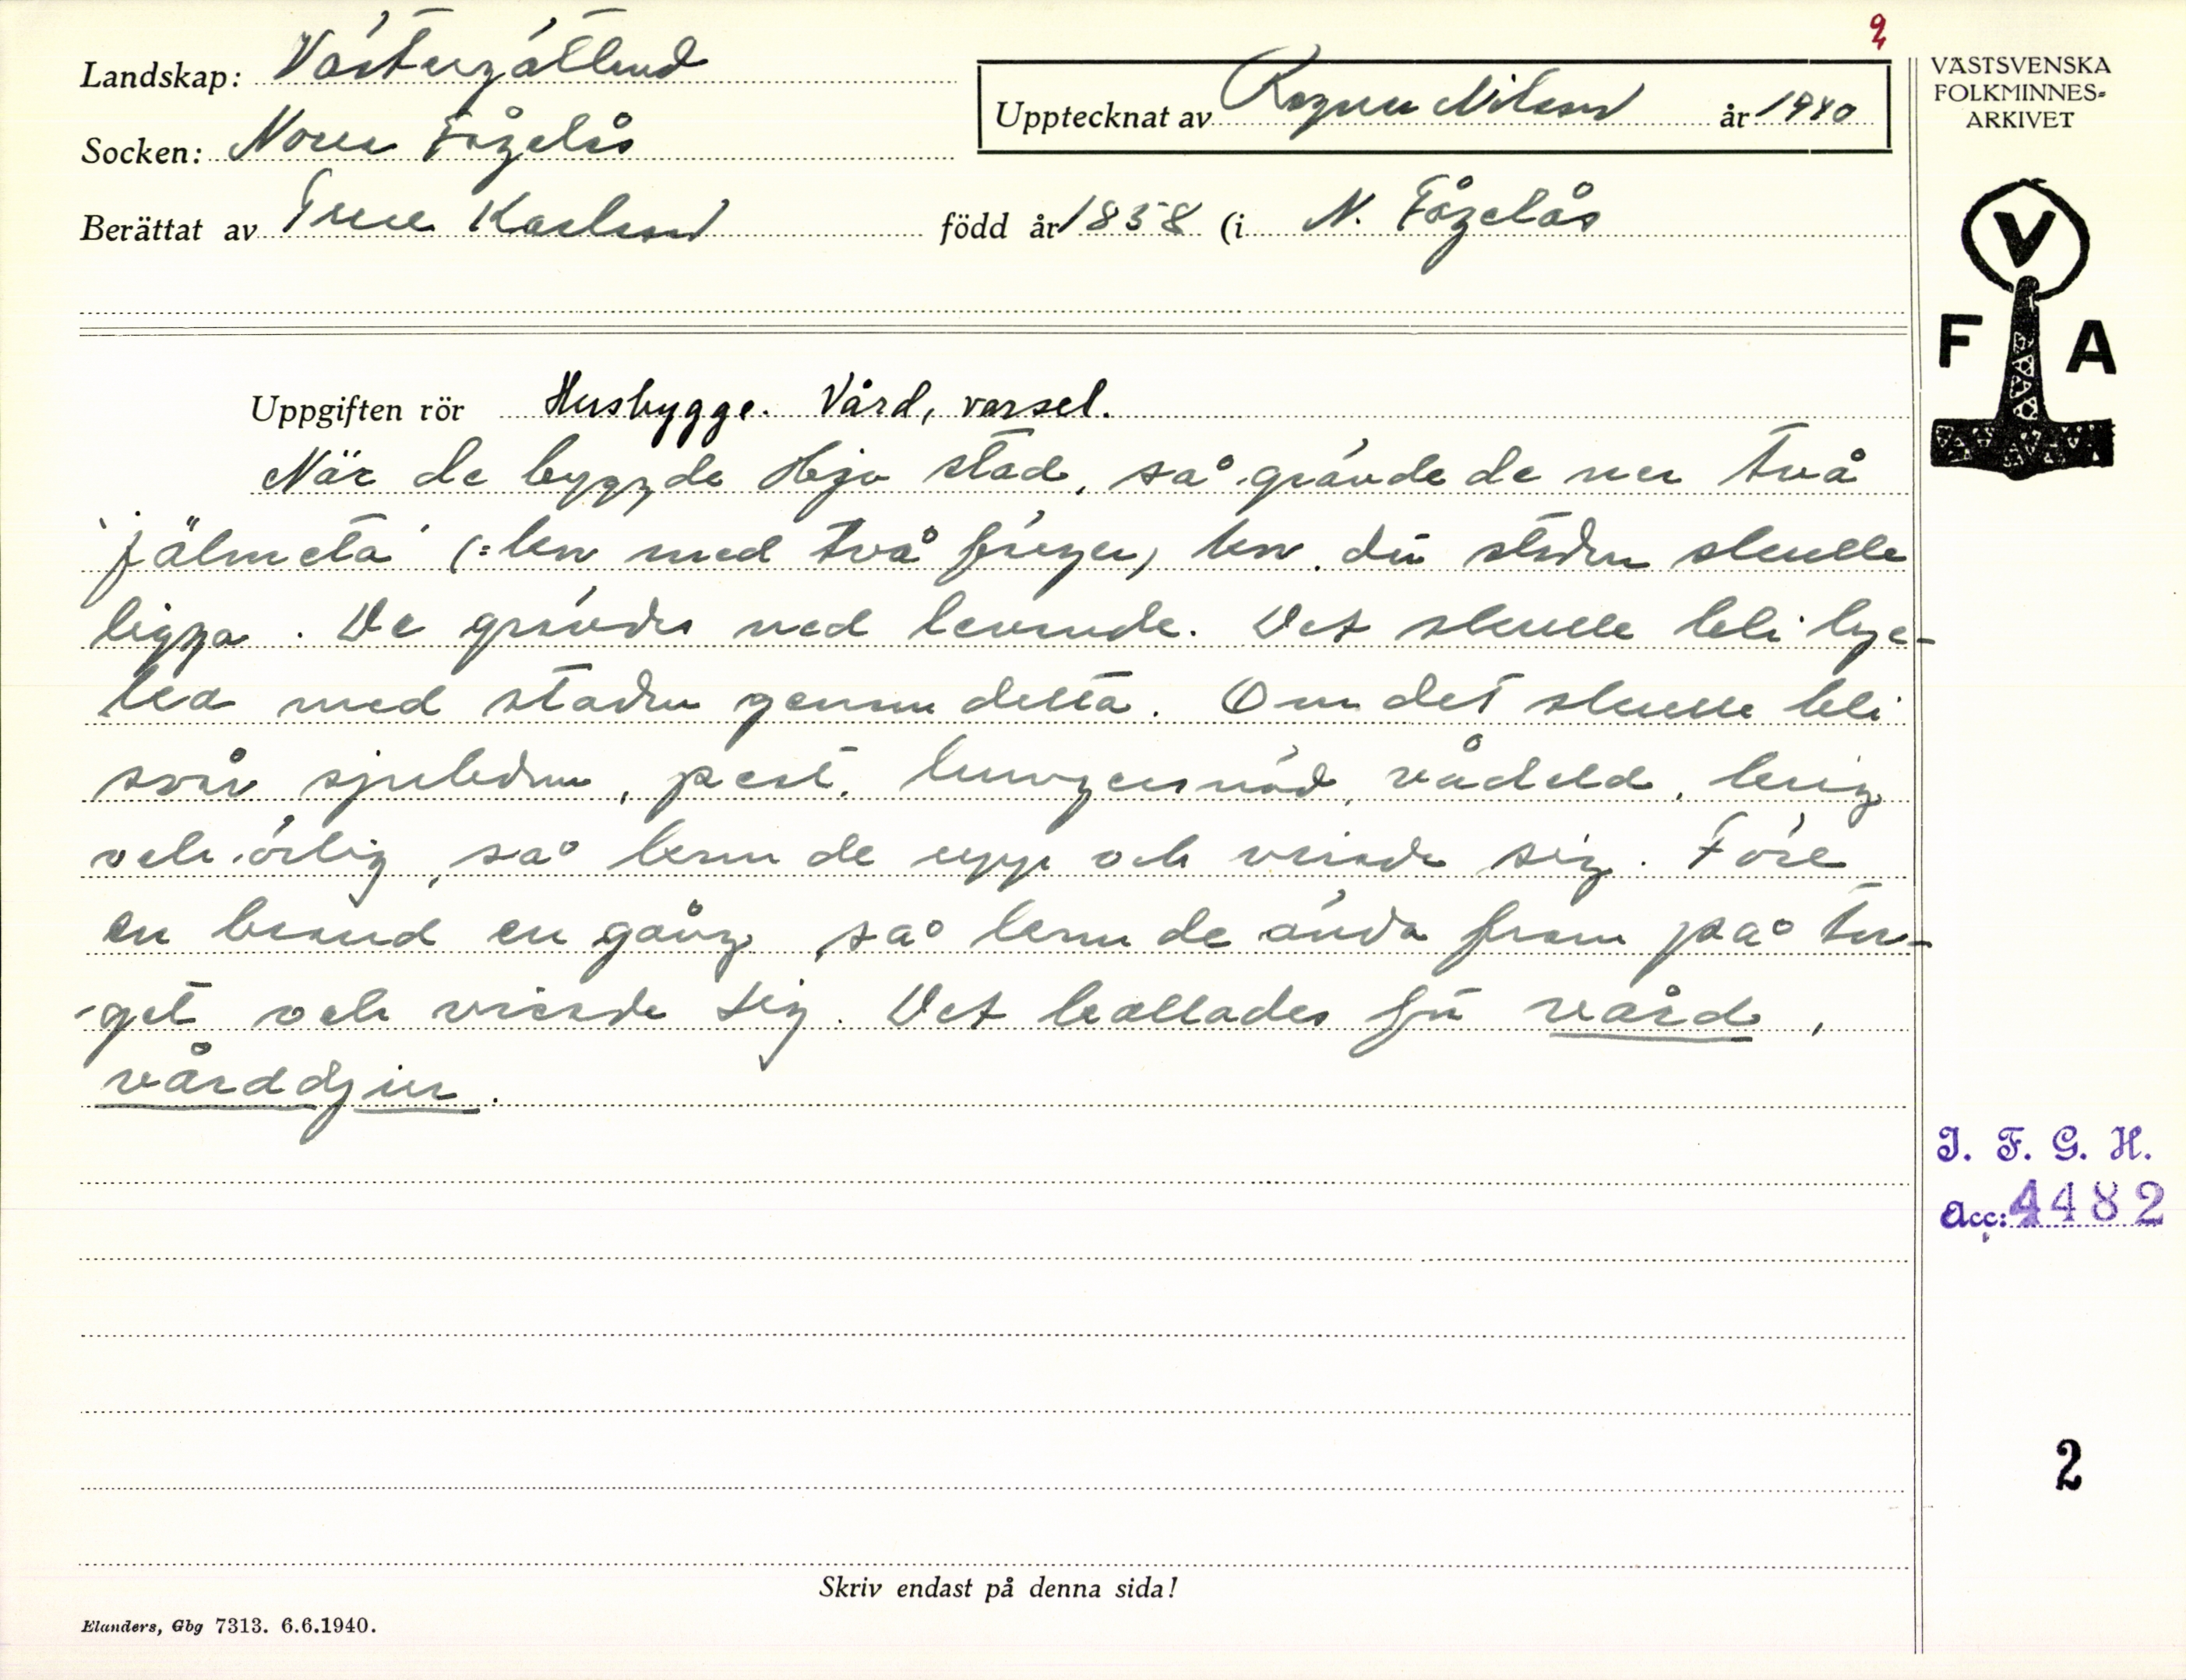 9
Landskap: Västergötland
Socken: Norra Fågelås
Berättat av Ture Karlsson född år 1858 (i N. Fågelås
Upptecknat av Ragnar Nilsson år 1940
VÄSTSVENSKA
FOLKMINNES-
ARKIVET
V
F A
Uppgiften rör Husbygge. Vård, varsel.
När de byggde Hjo stad, så grävde de ner två
"jälmeta" (: ben med två färger) där staden skulle
ligga. De grävdes ned levande. Det skulle bli lyc-
ka med staden genom detta. Om det skulle bli
svår sjukdom, pest, hungersnöd, vådeld, krig
och örlig, så kom de upp och visade sig. Före
en brand en gång, så kom de ända fram på tor-
get och visade sig. Det kallades för vård,
vårddjur.
I. F. G. H.
Acc: 4482
2
Skriv endast på denna sida!
Elanders, Gbg 7313. 6.6.1940.